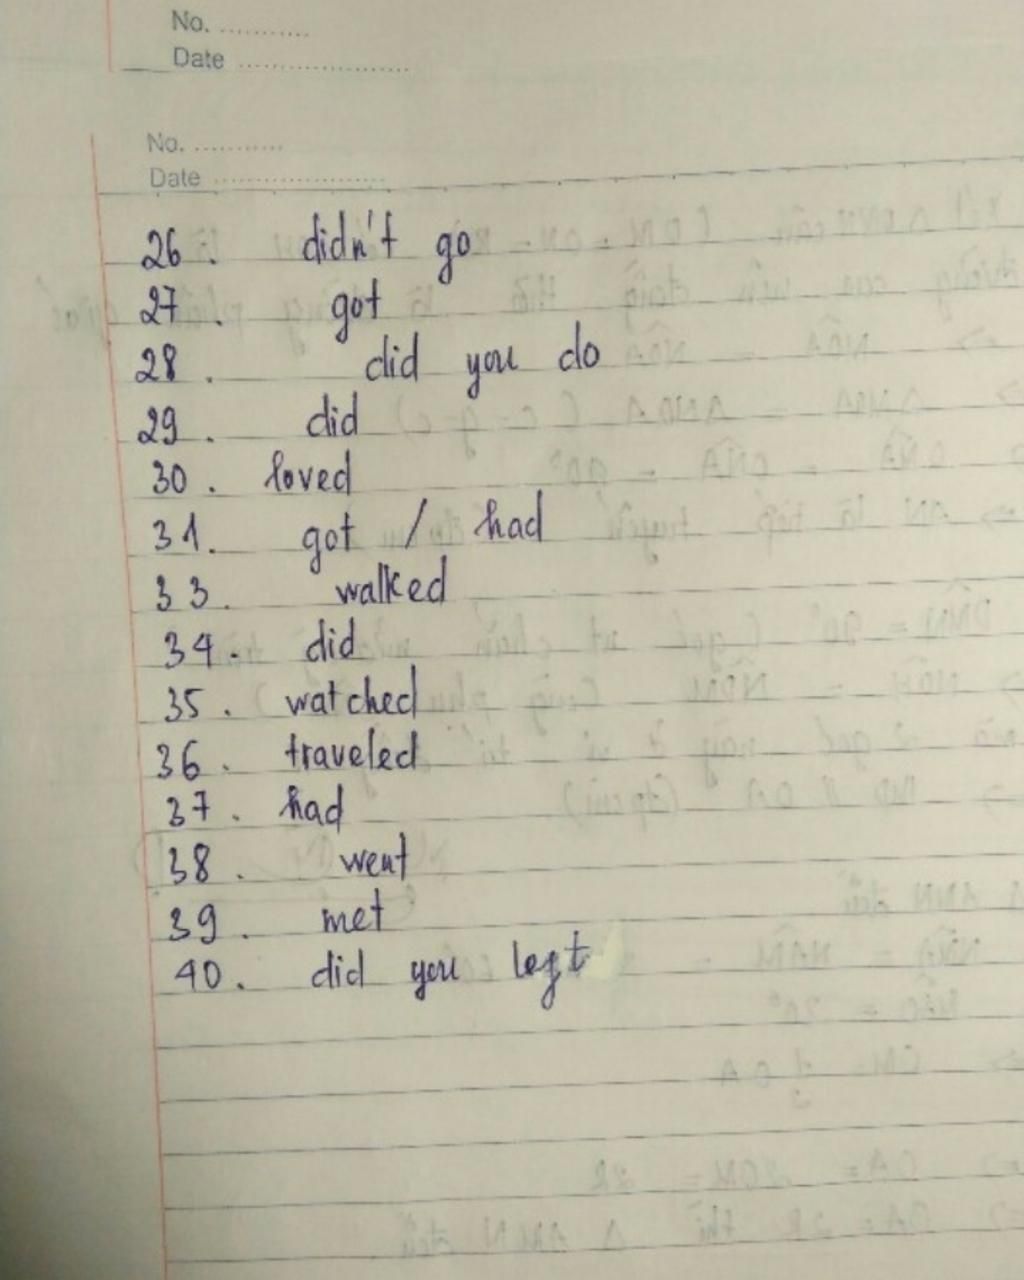 No. ...........
Date ......................
No. ...........
Date ......................
26. didn't go
27. got
28. did you do
29. did
30. loved
31. got / had
33. walked
34. did
35. watched
36. traveled
37. had
38. went
39. met
40. did you left